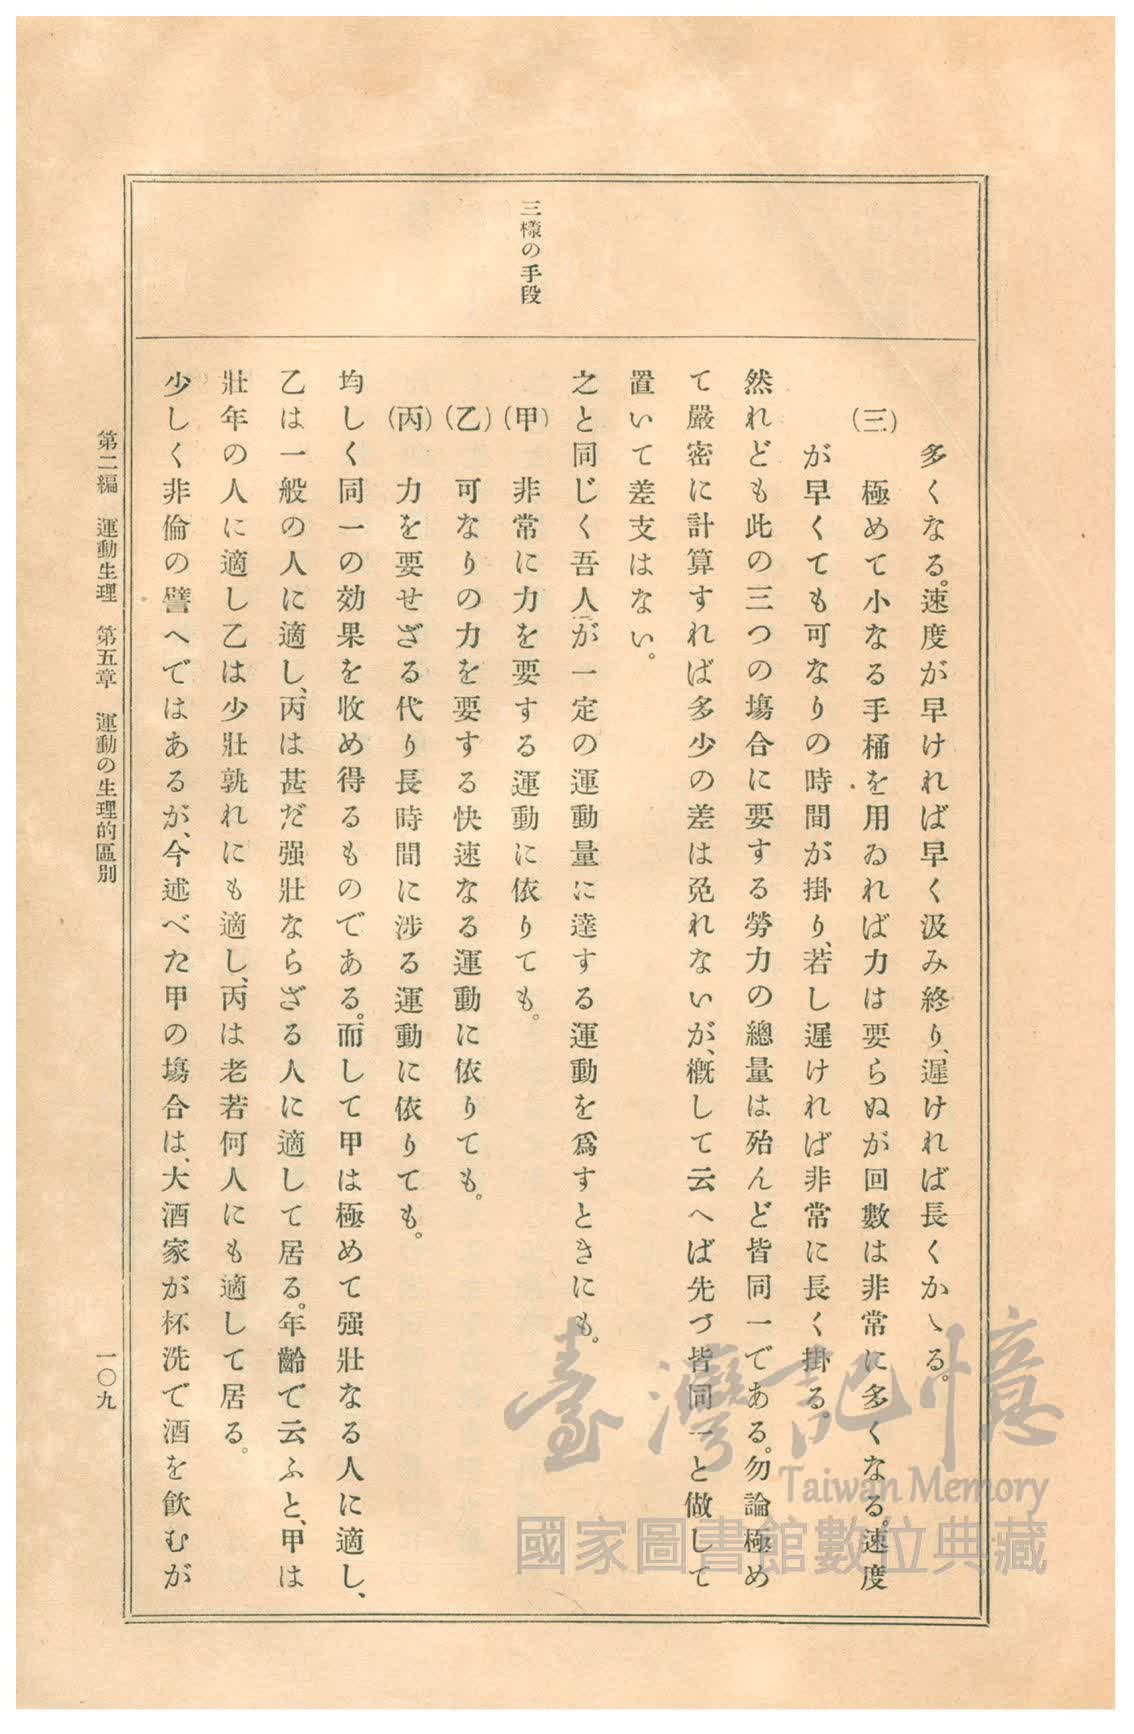 三樣の手段
多くなる。速度が早ければ早く汲み終り、遲ければ長くかゝる。
(三)　極めて小なる手桶を用ゐれば力は要らぬが回數は非常に多くなる。速度
が早くても可なりの時間が掛り、若し遲ければ非常に長く掛る。
然れども此の三つの塲合に要する勞力の總量は殆んど皆同一である。勿論極め
て嚴密に計算すれば多少の差は免れないが、概して云へば先づ皆同一と做して
置いて差支はない。
之と同じく吾人が一定の運動量に達する運動を爲すときにも。
(甲)　非常に力を要する運動に依りても。
(乙)　可なりの力を要する快速なる運動に依りても。
(丙)　力を要せざる代り長時間に涉る運動に依りても。
均しく同一の効果を收め得るものである。而して甲は極めて强壯なる人に適し、
乙は一般の人に適し、丙は甚だ强壯ならざる人に適して居る。年齡で云ふと、甲は
壯年の人に適し乙は少壯孰れにも適し、丙は老若何人にも適して居る。
少しく非倫の譬へではあるが、今述べた甲の塲合は、大酒家が杯洗で酒を飮むが
第二編　運動生理　第五章　運動の生理的區別
一〇九
臺灣記憶
Taiwan Memory
國家圖書館數位典藏